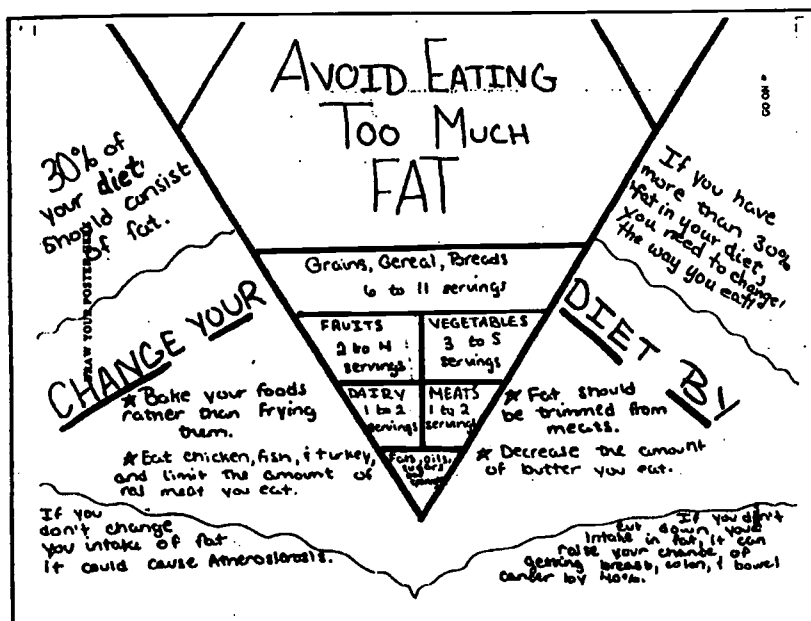 AVOID EATING
TOO MUCH
FAT
GO ON
30% of
your diet
should consist
of fat.
If you have
more than 30%
fat in your diet,
you need to change
the way you eat!
DRAW YOUR POSTER HERE
Grains, Cereal, Breads
6 to 11 servings
FRUITS
2 to 4
servings
VEGETABLES
3 to 5
servings
DAIRY
1 to 2
servings
MEATS
1 to 2
servings
Fats, oils,
sugars
CHANGE YOUR
DIET BY
★ Bake your foods
rather than frying
them.
★ Eat chicken, fish, & turkey,
and limit the amount of
red meat you eat.
★ Fat should
be trimmed from
meats.
★ Decrease the amount
of butter you eat.
If you
don't change
you intake of fat
it could cause Atherosclerosis.
If you don't
cut down your
intake in fat, it can
raise your chance of
getting breast, colon, & bowel
cancer by 40%.